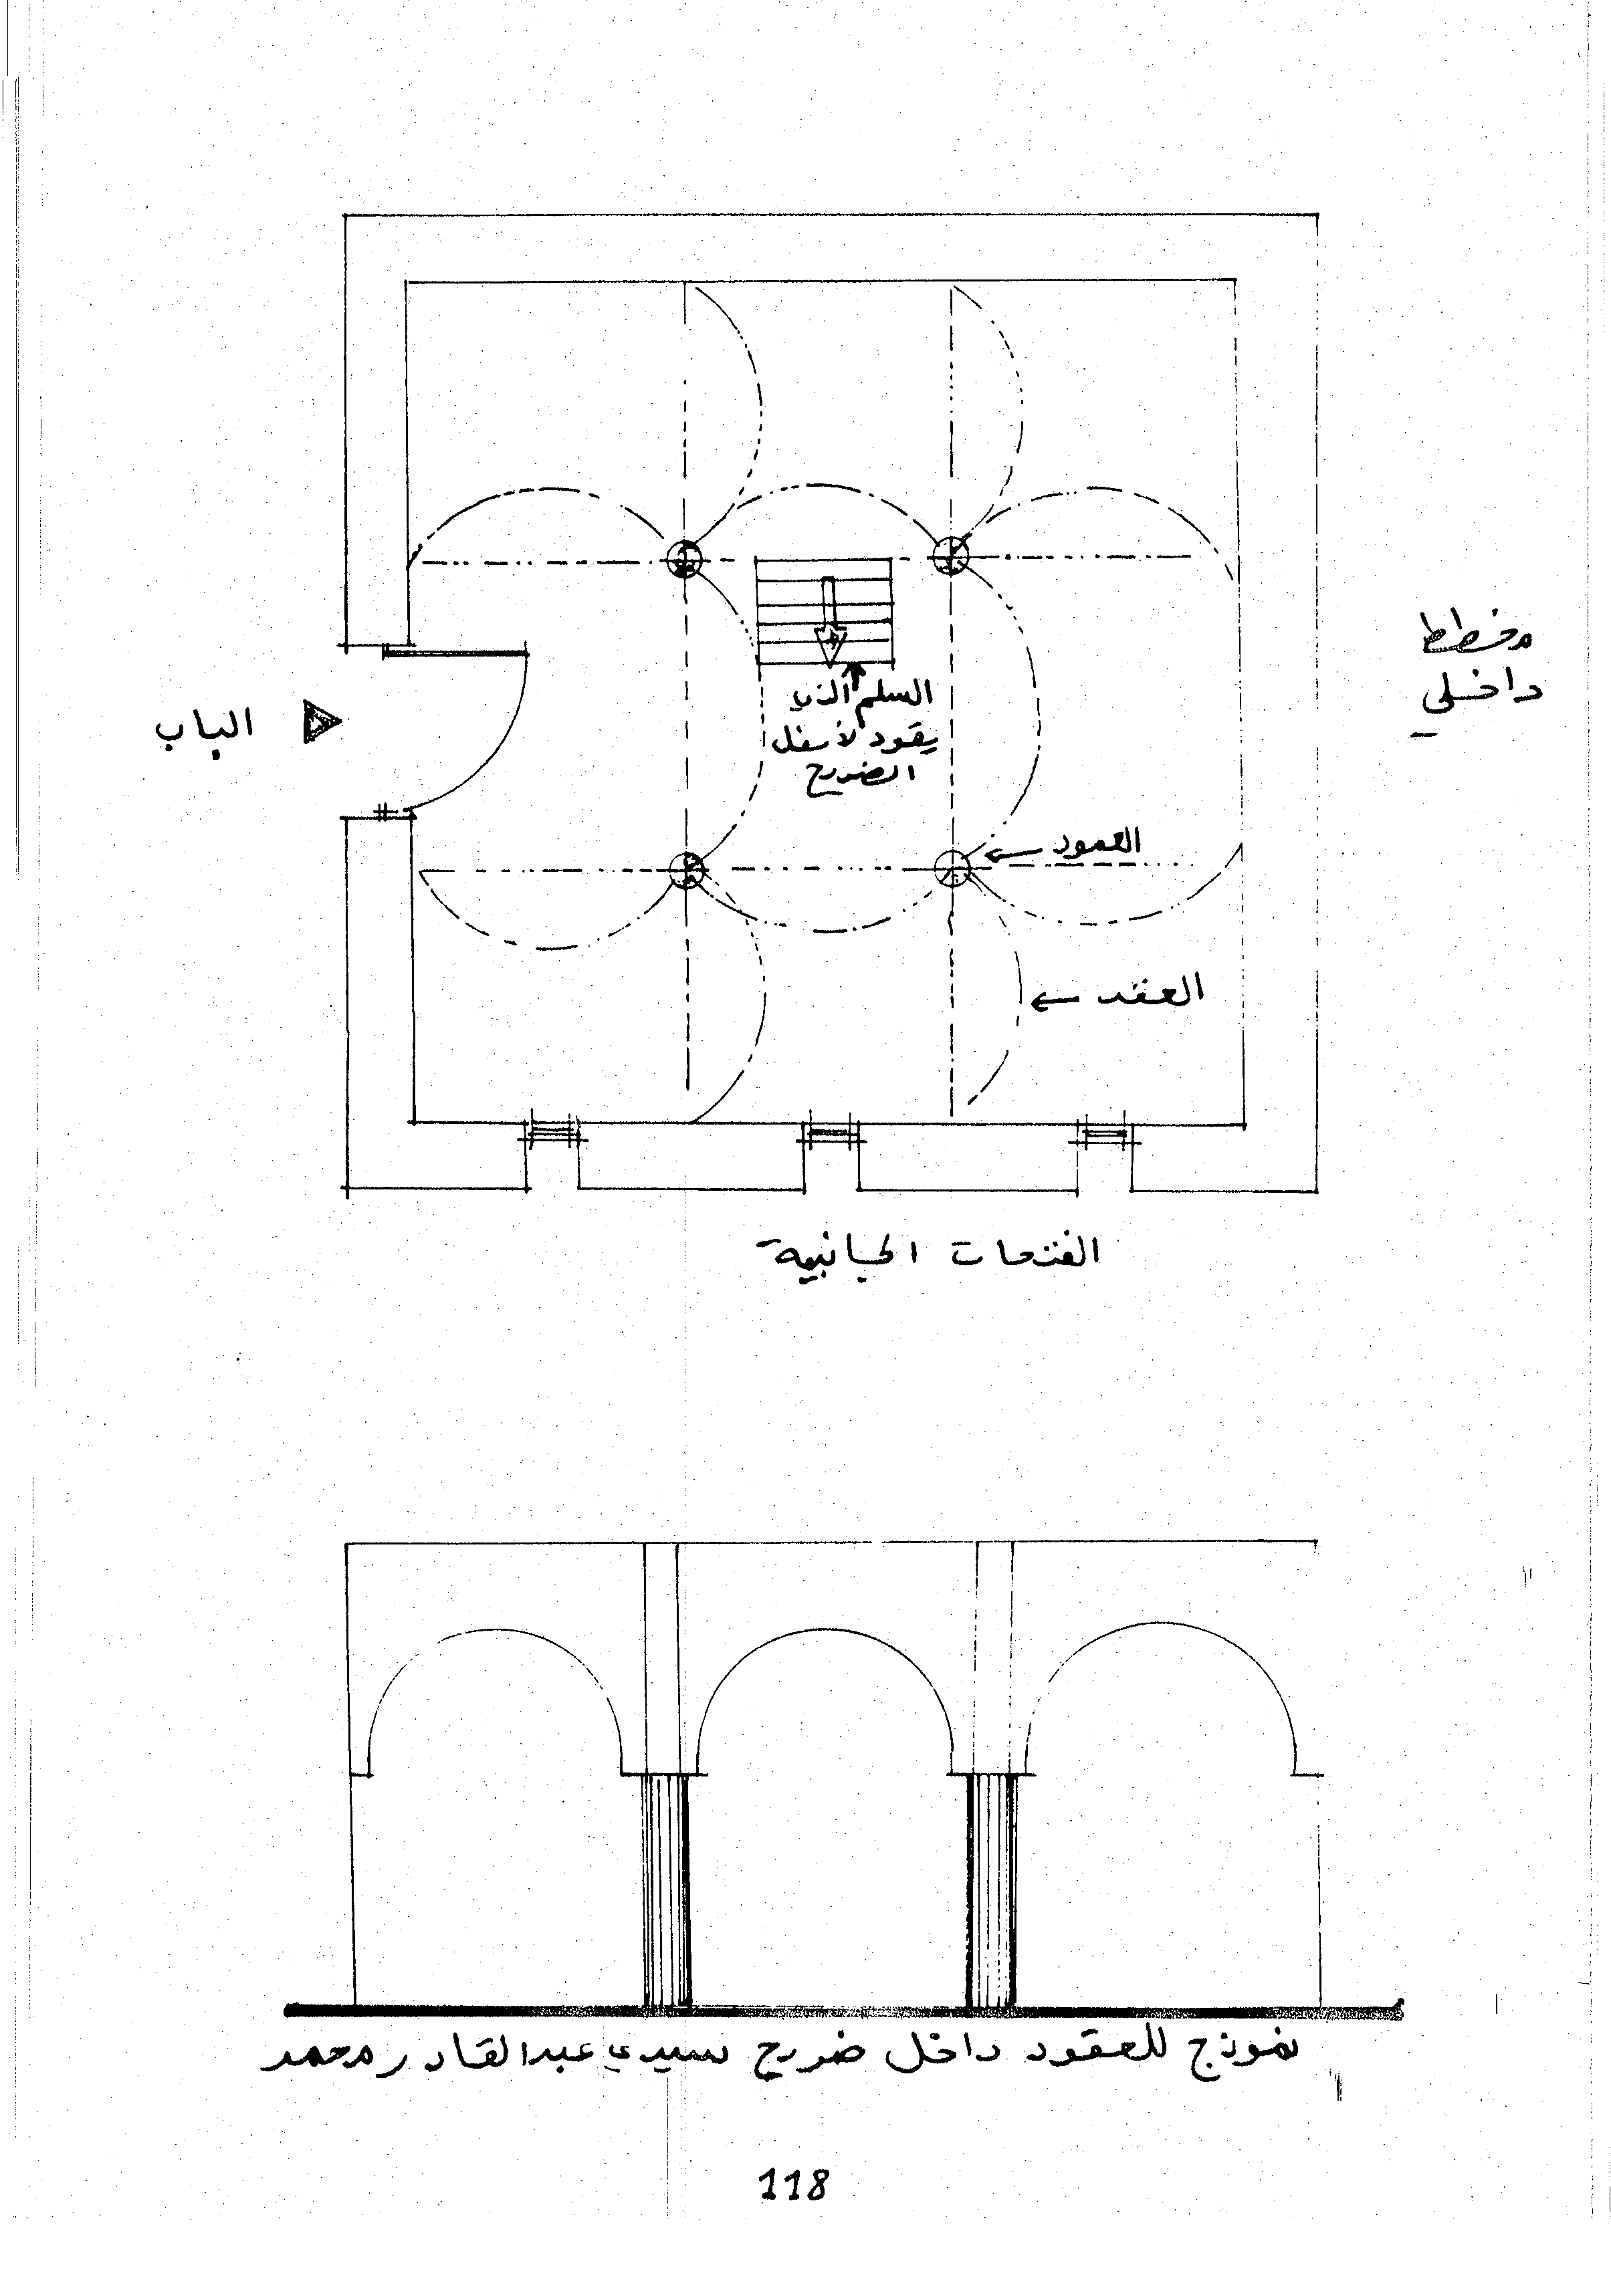 مخطط
داخلي
الباب
السلم الذي
يقود لأسفل
الضريح
العمود
العقد
الفتحات الجانبية
نموذج للعقود داخل ضريح سيدي عبد القادر محمد
118